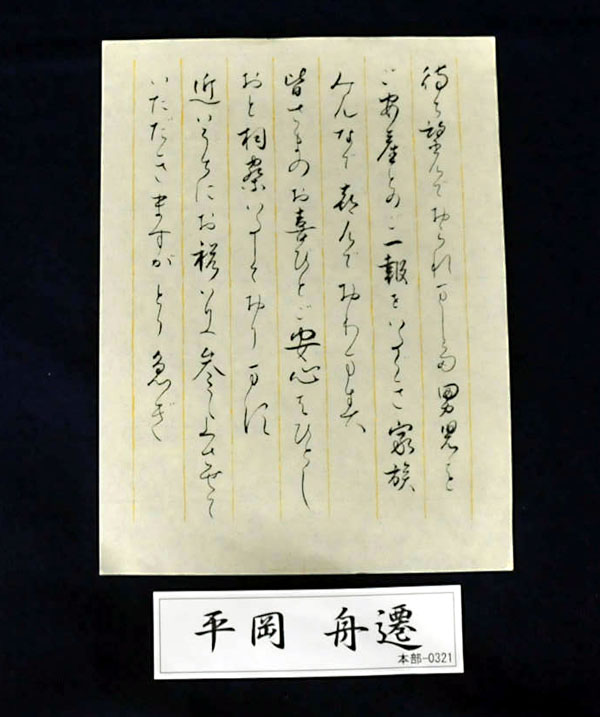 待ち望んでおられました男児を
ご安産とのご一報をいただき家族
みんなで喜んでおります
皆さまのお喜びとご安心もひとし
おと拝察いたしております
近いうちにお祝いに参上させて
いただきますがとり急ぎ
平岡 舟遷
本部-0321